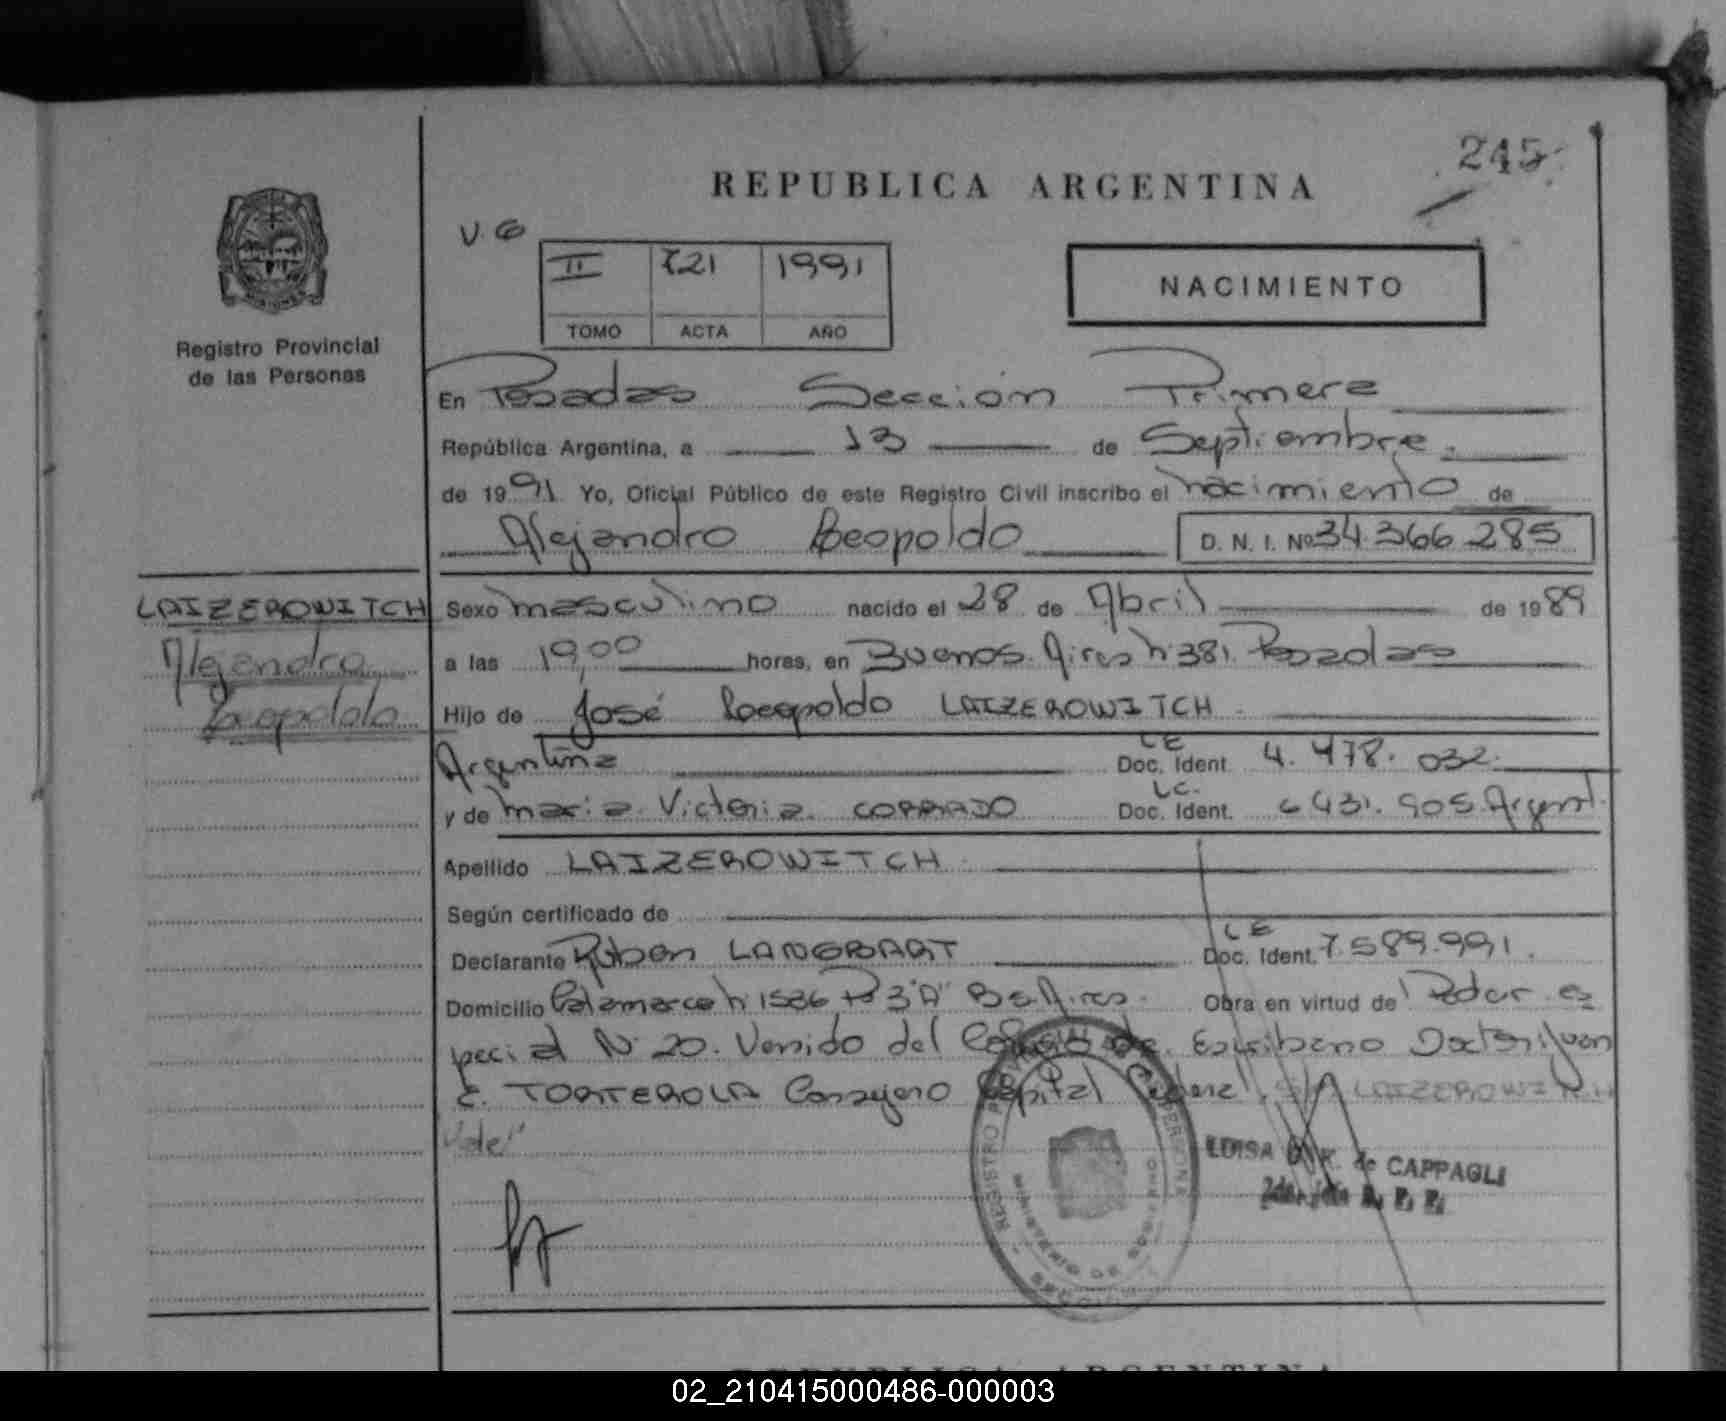 245
REPUBLICA ARGENTINA
V. 6
II 721 1991
TOMO ACTA AÑO
NACIMIENTO
MISIONES
Registro Provincial
de las Personas
En Posadas Sección Primera
República Argentina, a 13 de Septiembre
de 1991 Yo, Oficial Público de este Registro Civil inscribo el nacimiento de
Alejandro Leopoldo D. N. I. Nº 34.366.285
LAIZEROWITCH
Alejandro
Leopoldo
Sexo masculino nacido el 28 de Abril de 1989
a las 19,00 horas, en Buenos Aires nº 381. Posadas
Hijo de José Leopoldo LAIZEROWITCH
Argentina LE Doc. Ident 4.478.032.
y de Maria Victoria CORRADO LC. Doc. Ident. 6431.905. Argent.
Apellido LAIZEROWITCH
Según certificado de
Declarante Ruben LANGBART LE Doc. Ident. 7.589.991.
Domicilio Catamarca nº 1586 Pº 3 "A" Bs. Aires. Obra en virtud de Poder es
pecial Nº 20. Venido del Colegio de Escribano Doctor Juan
C. TORTEROLA Consejero Capital Federal. S/r LAIZEROWITCH
Vale"
REGISTRO PROVINCIAL DE LAS PERSONAS
MINISTERIO DE GOBIERNO
MISIONES
LUISA K. de CAPPAGLI
R. P. P.
REPUBLICA ARGENTINA
02_210415000486-000003